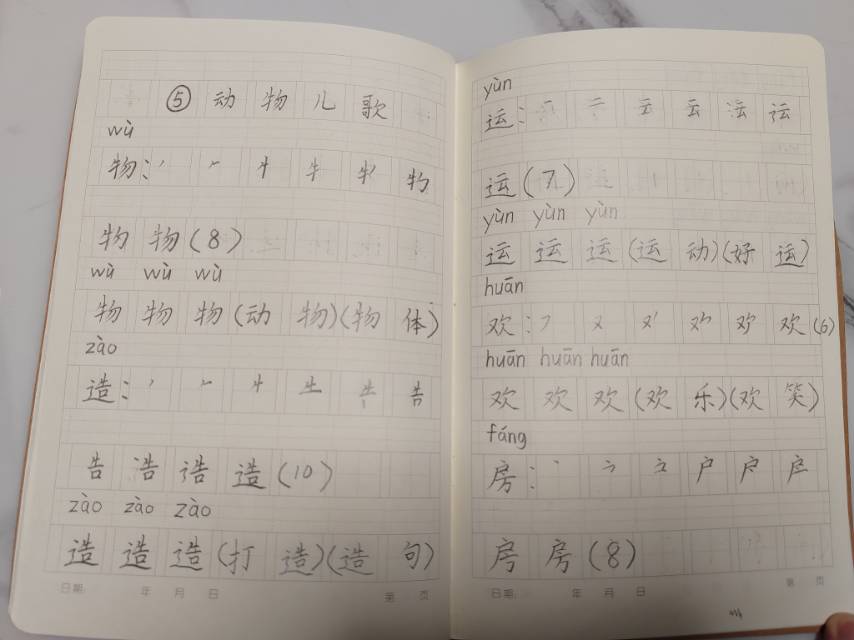 ⑤ 动物儿歌
wù
物: ノ 𠂉 牛 牜 物
物 物 (8)
wù wù wù
物 物 物 (动 物)(物 体)
zào
造: ノ 𠂉 牛 告
告 浩 造 造 (10)
zào zào zào
造 造 造 (打 造)(造 句)
日期: 年 月 日 第 页
yùn
运: 一 二 云 云 运
运 (7)
yùn yùn yùn
运 运 运 (运 动)(好 运)
huān
欢: フ 又 欢 (6)
huān huān huān
欢 欢 欢 (欢 乐)(欢 笑)
fáng
房: 丶 户 户
房 房 (8)
日期: 年 月 日 第 页